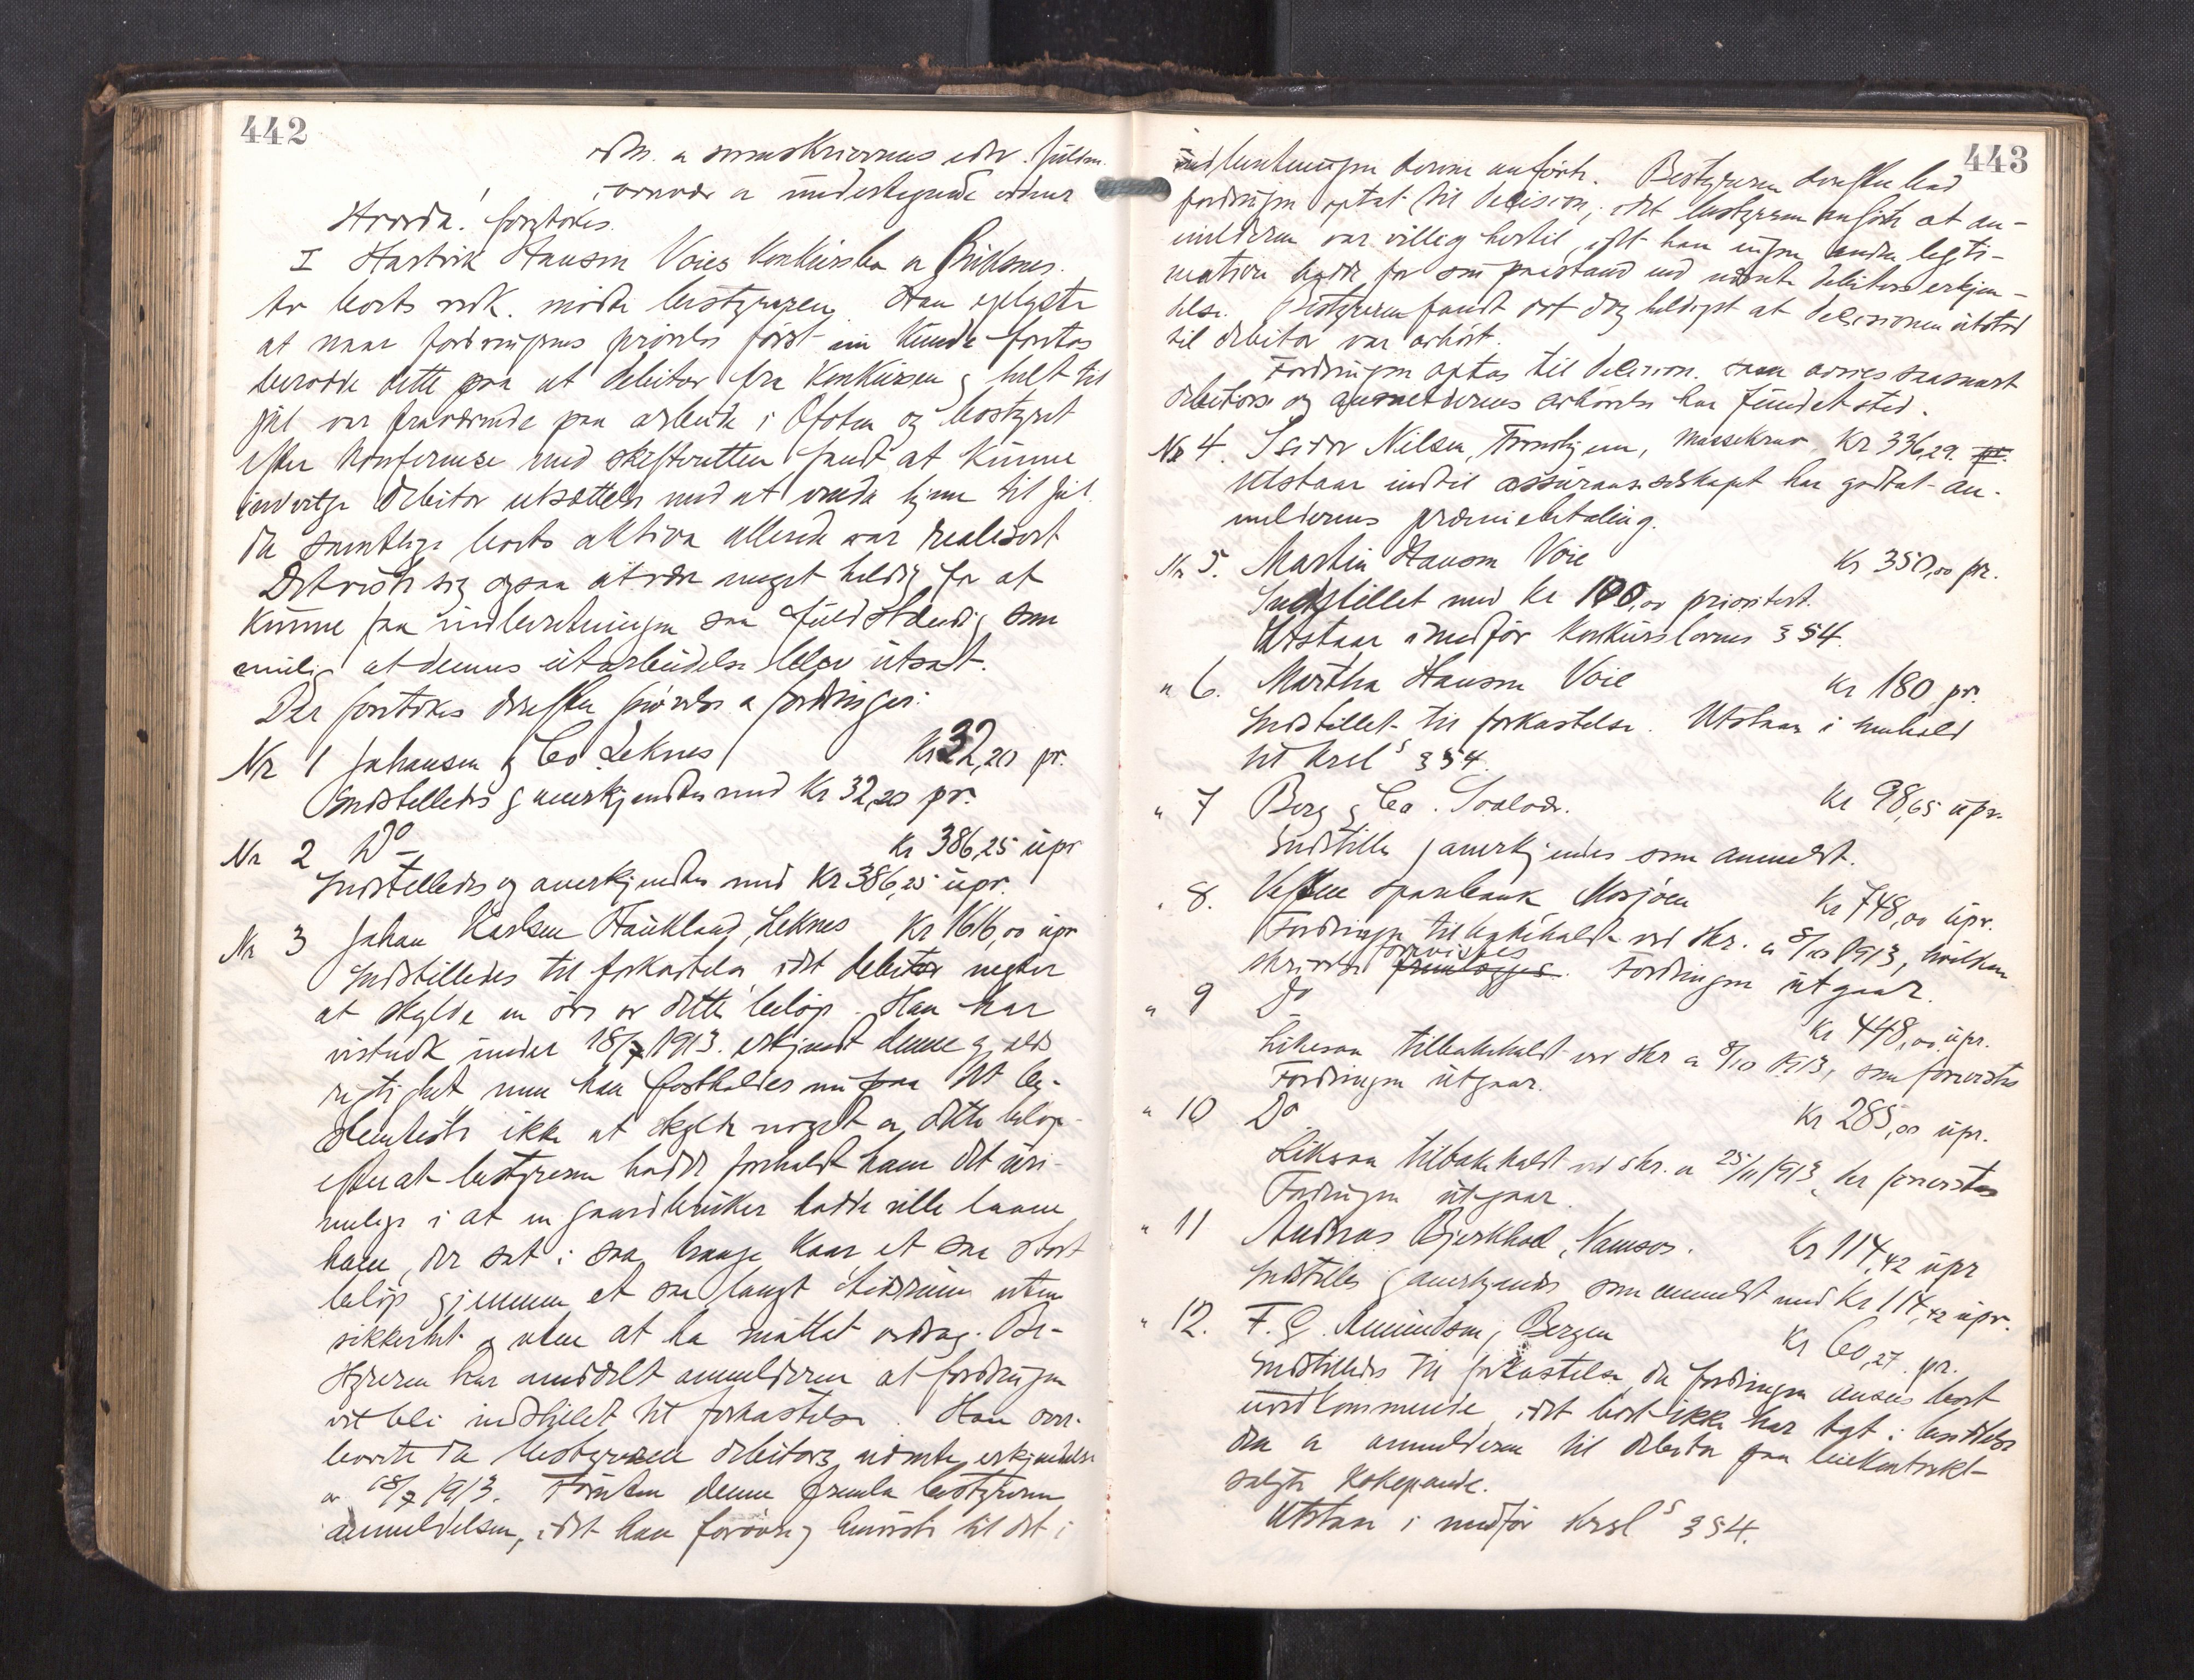 442
edsv. a sorenskriverens edsv. fuldm.
i nærvær a undertegnede vidner
Hvorda! foretokes
I Hartvik Hansen Voies Konkursbo a Buksnes.
for boets vedk. mødte bestyreren. Han oplyste
at naar fordringenes prøvelse først nu kunde foretas
beroede dette paa at debitor fra konkursen og helt til
jul var fraværende paa arbeide i Ofoten og bostyret
efter konferense med skifteretten fandt at kunne
indvilge debitor utsættelse med at vende hjem til jul
da samtlige boets aktiva allerede var realisert
Det viste sig ogsaa at være meget heldig for at
kunne faa indberetningen saa fuldstændig som
mulig at dennes utarbeidelse blev utsat.
Der foretokes derefter prøvelse a fordringer:
Nr 1 Johansen & Co Leknes Kr 32,20 pr.
Indstilledes og anerkjendtes med Kr 32,20 pr.
Nr 2 Do Kr 386,25 upr
Indstilledes og anerkjendtes med Kr 386,25 upr.
Nr 3 Johan Karlsen Haukland, Leknes Kr 1616,00 upr
Indstilledes til forkastelse idet debitor negter
at skylde en øre av dette beløp. Han har
vistnok under 18/7 1913. erkjendt denne gjelds
rigtighet men han fastholder nu paa det be-
stemteste ikke at skylde noget a dette beløp
efterat bestyreren hadde foreholdt ham det uri-
melige i at en gaardbruker hadde ville laane
ham, der sat i saa trange kaar et saa stort
beløp gjennem et saa langt tidsrum uten
sikkerhet og uten at ha mottat avdrag. Be-
styreren har meddelt anmelderen at fordringen
vil bli indstillet til forkastelse. Han over-
leverte da bestyreren debitors nævnte erkjendelse
av 18/7 1913. Foruten denne fremla bestyreren
anmeldelsen, idet han forøvrig henviste til det i
443
indberetningen derom anførte. Bestyreren derefter lod
fordringen optat til decision, idet bestyreren anførte at an-
melderen var villig hertil, idet han ingen anden legiti-
mation hadde for sin paastand end nævnte debitors erkjen-
delse. Bestyreren fandt det dog heldigst at decisionen utstod
til debitor var avhørt.
Fordringen optas til decision. som avsies saasnart
debitors og anmelderens avhørelse har fundet sted.
Nr 4. Isidor Nilsen, Trondhjem, massekrav Kr 336,29.
Utstaar indtil assuranseselskapet har godtat an-
melderens præmiebetaling.
Nr 5. Martin Hansen Voie Kr 350,00 pr.
Indstillet med kr 100,00 prioritert.
Utstaar i medfør konkurslovens § 54.
" 6. Martha Hansen Voie Kr 180 pr.
Indstillet til forkastelse. Utstaar i henhold
til krsl s § 54.
" 7 Berg & Co. Svolvær. Kr 98,65 upr.
Indstilles og anerkjendes som anmeldt.
" 8. Vefsen sparebank Mosjøen Kr 748,00 upr.
Fordringen tilbakekaldt ved skr. a 8/10 1913, hvilken
skrivelse fremlægges forevistes. Fordringen utgaar.
" 9 Do Kr 448,00 upr.
Likesaa tilbakekaldt ved skr a 8/10 1913, som forevistes
Fordringen utgaar.
" 10 Do Kr 285,00 upr.
Likesaa tilbakekaldt ved skr. a 25/11 1913, der forevistes
Fordringen utgaar.
" 11 Andreas Bjerkhoel, Namsos. Kr 114,42 upr
Indstilles og anerkjendes som anmeldt med Kr 114,42 upr.
" 12. F. G. Amundsen, Bergen Kr 60,27 pr.
Indstilledes til forkastelse da fordringen ansees boet
uvedkommende, idet boet ikke har tat i besiddelse
den a anmelderen til debitor paa leiekontrakt
solgte kokepande.
Utstaar i medfør krsl s § 54.